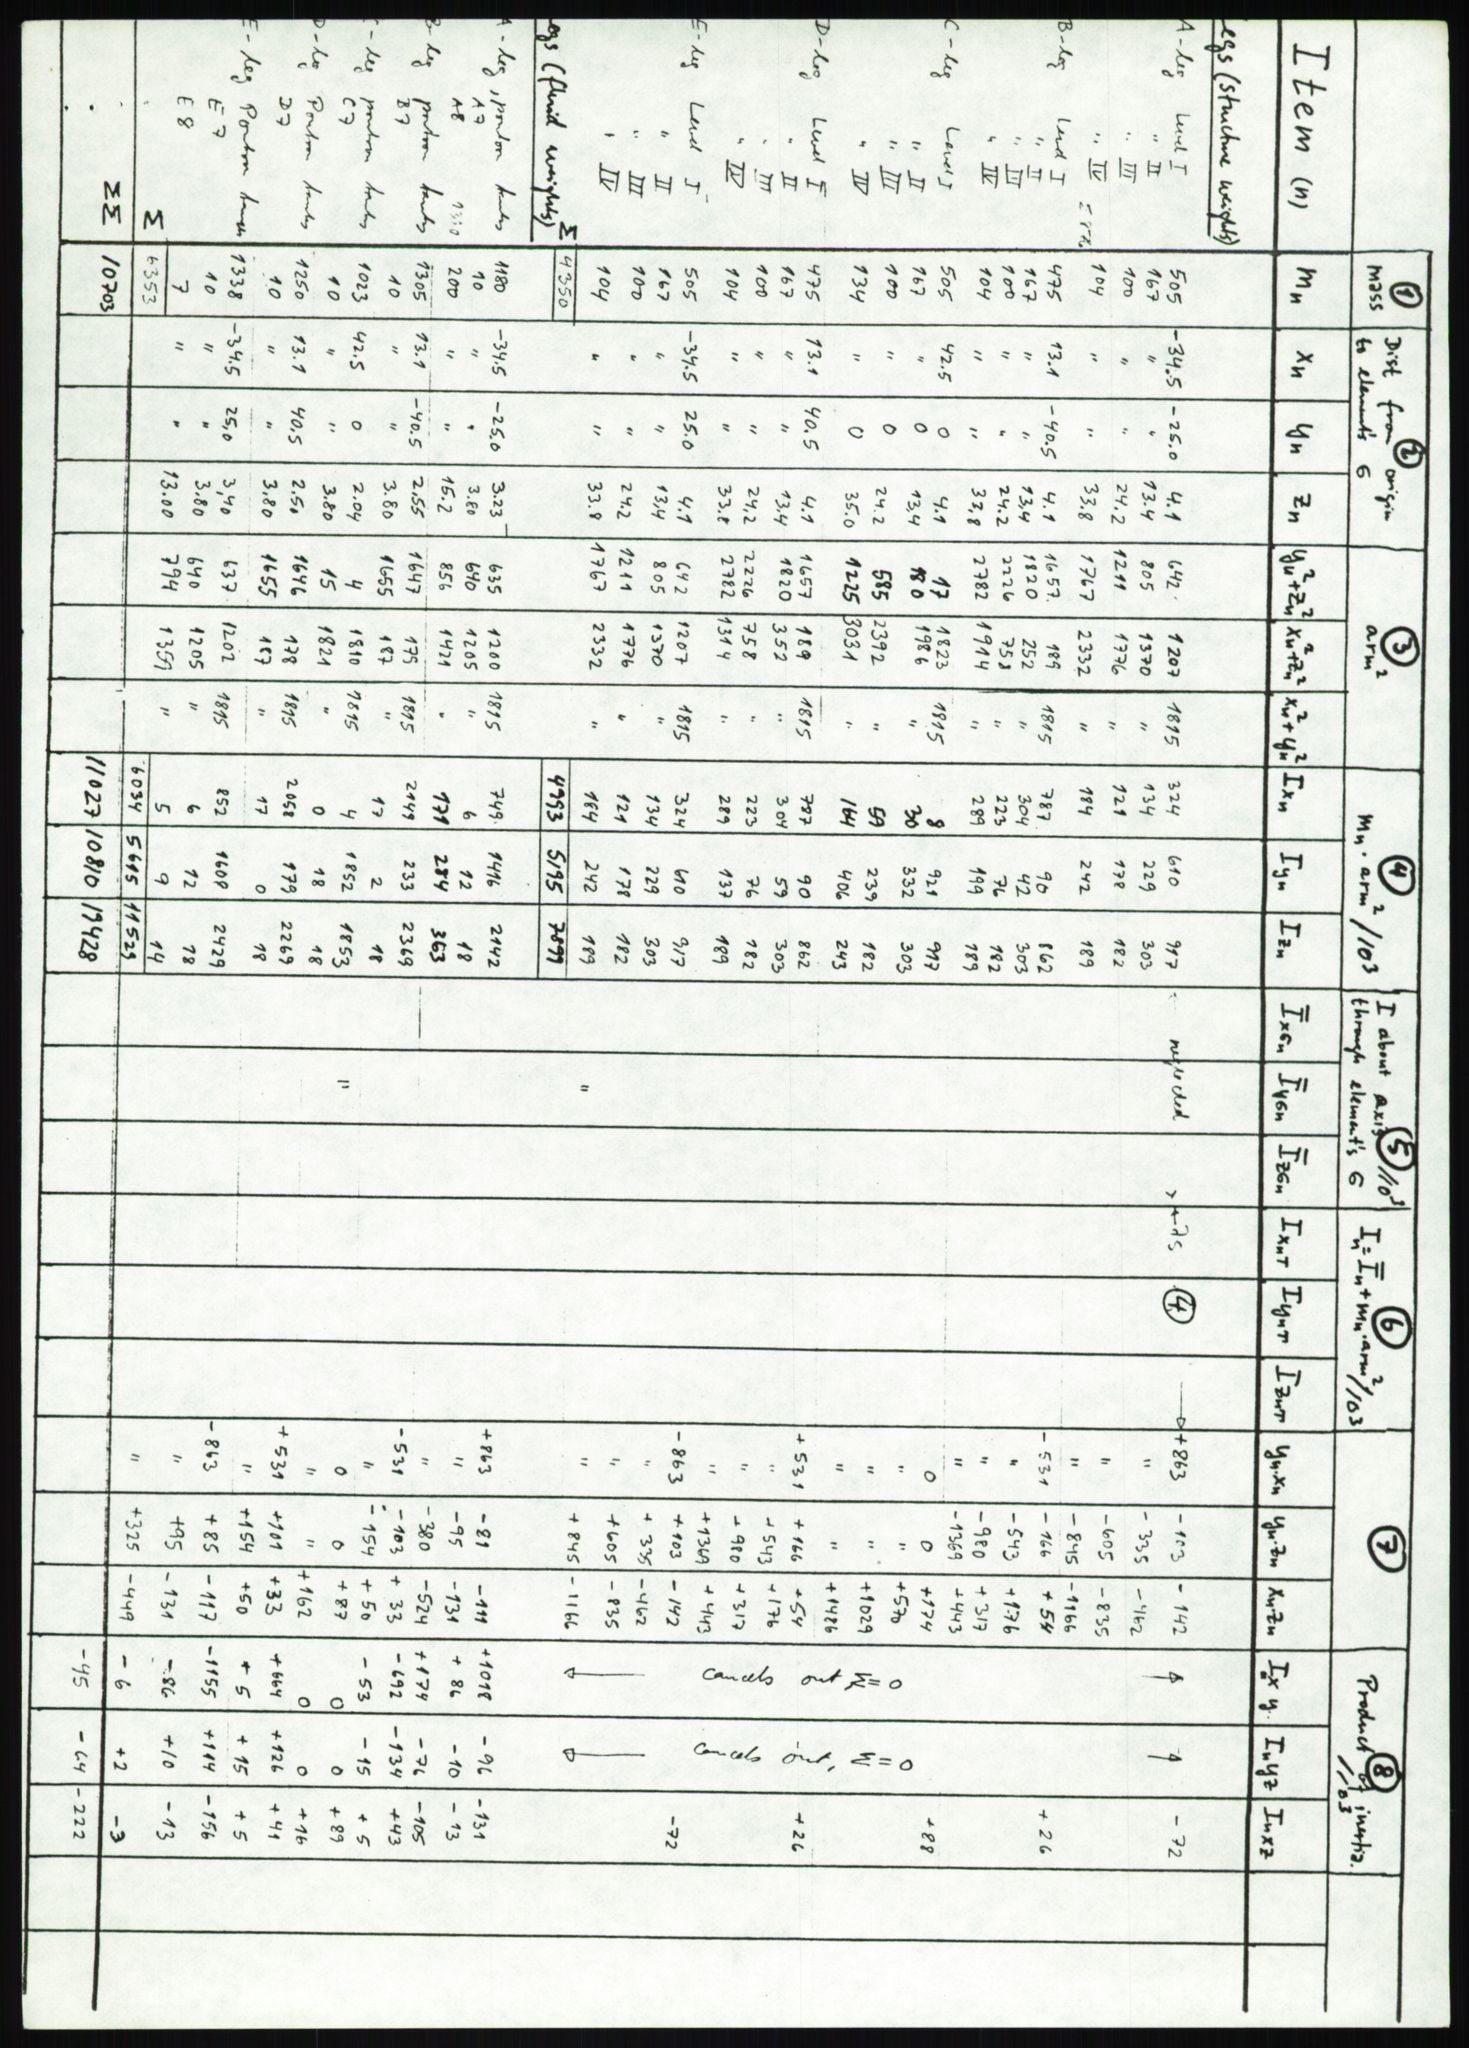 Item (n) | ① mass | ② Dist from origin to element's G | ③ arm² | ④ mn · arm²/10³ | ⑤ I about axis through element's G /10³ | ⑥ In = Īn + mn·arm²/10³ | ⑦ | ⑧ Product of inertia /10³
mn | xn | yn | zn | yn²+zn² | xn²+zn² | xn²+yn² | Ixn | Iyn | Izn | ĪxGn | ĪyGn | ĪzGn | IxnT | IynT | IznT | yn·xn | yn·zn | xn·zn | Inxy | Inyz | Inxz
egs (structure weights)
A-leg Level I 505 -34.5 -25.0 4.1 642 1207 1815 324 610 917 - neglected → as ④ → +863 -103 -142 -72
" II 167 " " 13.4 805 1370 " 134 229 303 " -335 -462
" III 100 " " 24.2 1211 1776 " 121 178 182 " -605 -835
" IV 104 " " 33.8 1767 2332 " 184 242 189 " -845 -1166
B-leg Level I 475 13.1 -40.5 4.1 1657 189 1815 787 90 862 -531 -166 +54 +26
" II 167 " " 13,4 1820 252 " 304 42 303 " -543 +176
" III 100 " " 24.2 2226 758 " 223 76 182 " -980 +317
" IV 104 " " 33,8 2782 1914 " 289 199 189 " -1369 +443
C-leg Level I 505 42.5 0 4.1 17 1823 1815 8 921 917 0 0 +174 +88
" II 167 " 0 13,4 180 1986 " 30 332 303 " " +570
" III 100 " 0 24.2 585 2392 " 59 239 182 " " +1029
" IV 134 " 0 35.0 1225 3031 " 164 406 243 " " +1486
cancels out Σ=0 cancels out, Σ=0
D-leg Level I 475 13.1 40.5 4.1 1657 189 1815 787 90 862 +531 +166 +54 +26
" II 167 " " 13,4 1820 352 " 304 59 303 " +543 +176
" III 100 " " 24,2 2226 758 " 223 76 182 " +980 +317
" IV 104 " " 33.8 2782 1314 " 289 137 189 " +1369 +443
E-leg Level I 505 -34.5 25.0 4.1 642 1207 1815 324 610 917 -863 +103 -142 -72
" II 167 " " 13,4 805 1370 " 134 229 303 " +335 -462
" III 100 " " 24.2 1211 1776 " 121 178 182 " +605 -835
" IV 104 " " 33.8 1767 2332 " 184 242 189 " " +845 -1166
Σ 4350 4993 5195 7899
egs (fluid weights)
A-leg, ponton tanks 1180 -34.5 -25.0 3.23 635 1200 1815 749 1416 2142 +863 -81 -111 +1018 -96 -131
A7 10 " " 3.80 640 1205 " 6 12 18 " -95 -131 +86 -10 -13
A8 200 " " 15.2 856 1421 " 171 284 363 " -380 -524 +174 -76 -105
B-leg ponton tanks 1305 13.1 -40.5 2.55 1647 175 1815 2149 233 2369 -531 -103 +33 -692 -134 +43
B7 10 " " 3.80 1655 187 " 17 2 18 " -154 +50 -53 -15 +5
C-leg ponton tanks 1023 42.5 0 2.04 4 1810 1815 4 1852 1853 0 0 +87 0 0 +89
C7 10 " " 3.80 15 1821 " 0 18 18 " " +162 0 0 +16
D-leg Ponton tanks 1250 13.1 40.5 2.50 1646 178 1815 2058 179 2269 +531 +101 +33 +664 +126 +41
D7 10 " " 3.80 1655 187 " 17 0 18 " +154 +50 +5 +15 +5
E-leg Ponton tanks 1338 -34.5 25,0 3,40 637 1202 1815 852 1608 2429 -863 +85 -117 -1155 +114 -156
E7 10 " " 3.80 640 1205 " 6 12 18 " +95 -131 -86 +10 -13
E8 7 " " 13.00 794 1359 " 5 9 14 " +325 -449 -6 +2 -3
Σ 6353 6034 5615 11529
ΣΣ 10703 11027 10810 19428 -45 -64 -222